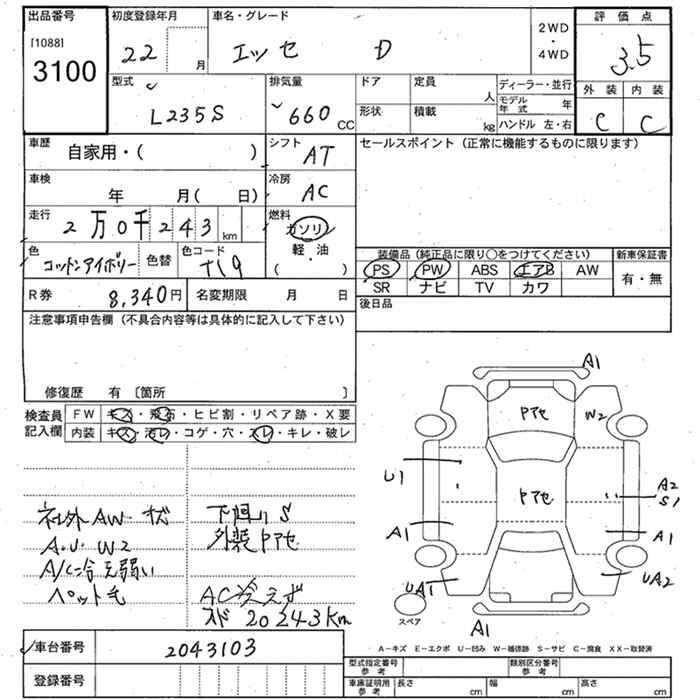 出品番号
[1088]
3100
初度登録年月
22 月
車名・グレード
エッセ D
2WD
・
4WD
評価点
3.5
型式
L235S
排気量
660 CC
ドア
形状
定員
人
積載
kg
ディーラー・並行
モデル年式 年
ハンドル 左・右
外装
C
内装
C
車歴
自家用・( )
シフト
AT
セールスポイント(正常に機能するものに限ります)
車検
年 月( 日)
冷房
AC
走行
2万0千243km
燃料
ガソリン
軽・油
( )
色
コットンアイボリー
色替
色コード
T19
装備品(純正品に限り〇をつけてください)
新車保証書
PS PW ABS エアB AW
SR ナビ TV カワ
有・無
R券
8,340円
名変期限 月 日
後日品
注意事項申告欄(不具合内容等は具体的に記入して下さい)
修復歴 有〔箇所 〕
検査員
記入欄
FW キズ・飛石・ヒビ割・リペア跡・X要
内装 キズ・汚レ・コゲ・穴・スレ・キレ・破レ
社外AW キズ
A.U W2
A/C冷え弱い
ペット毛
下廻りS
外装P7セ
AC冷えず
20243Km
A1
P7セ
W2
U1
P7セ
A2
S1
A1
A1
UA1
UA2
A1
スペア
A-キズ E-エクボ U-凹み W-補修跡 S-サビ C-腐食 XX-取替済
車台番号
2043103
登録番号
型式指定番号
参考
類別区分番号
参考
車庫証明用
参考
長さ cm
幅 cm
高さ cm